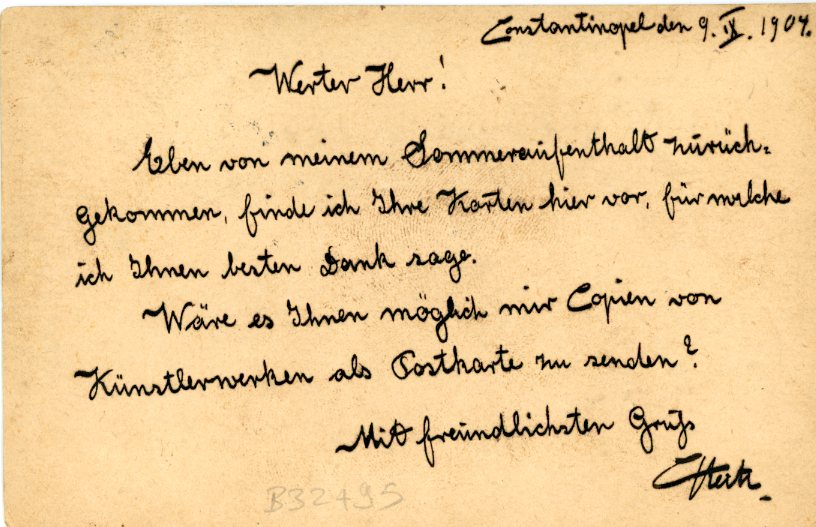 Constantinopel den 9. IX. 1904.
Werter Herr!
Eben von meinem Sommeraufenthalt zurück-
gekommen, finde ich Ihre Karten hier vor, für welche
ich Ihnen besten Dank sage.
Wäre es Ihnen möglich mir Copien von
Künstlerwerken als Postkarte zu senden?
Mit freundlichsten Gruß
B32495